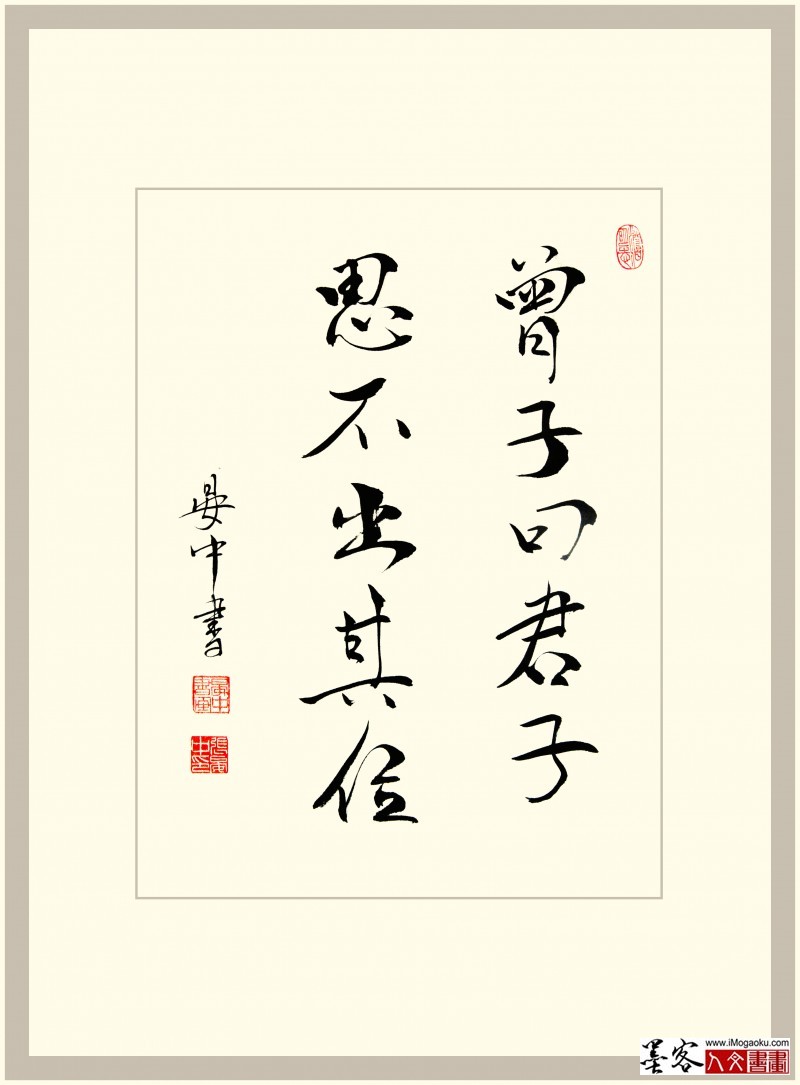 曾子曰君子
思不出其位
晏中书
www.iMogaoku.com
墨客
人文書畫